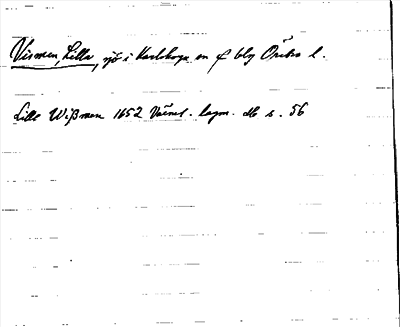 Vismen, Lilla, sjö i Karlskoga sn o bg Örebro l.
Lille Wißmen 1652 Värml. lagm. db s. 56